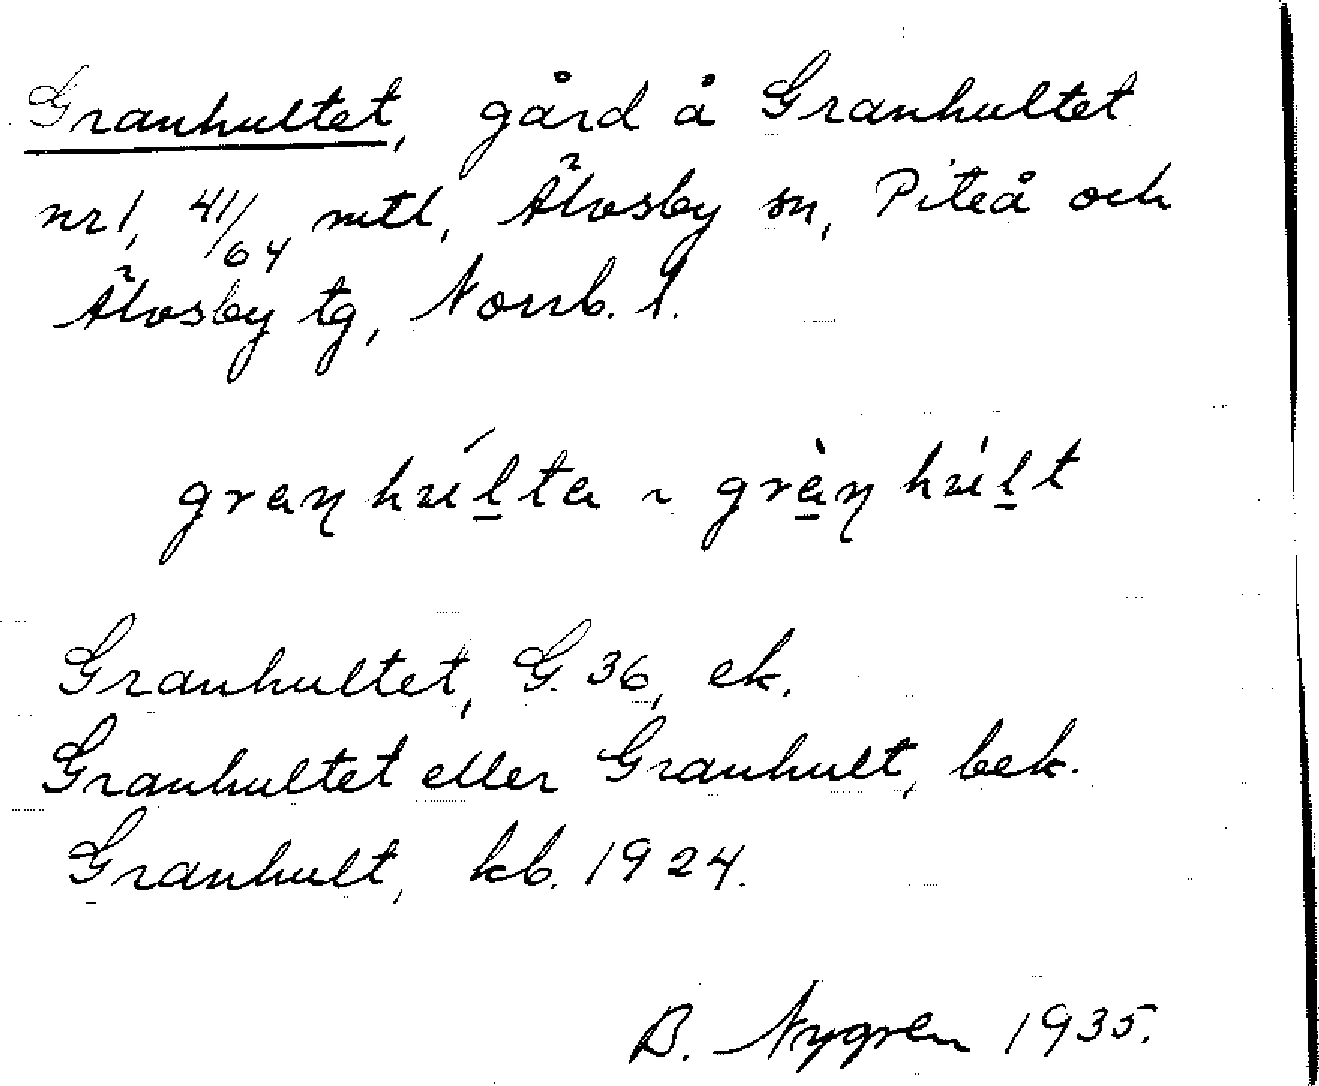 Granhultet, gård å Granhultet
nr 1, 41/64 mtl, Älvsby sn, Piteå och
Älvsby tg, Norrb. l.
graŋhúl̲ta ~ grà̲ŋhùl̲t
Granhultet, G. 36, ek.
Granhultet eller Granhult, bek.
Granhult, kb. 1924.
B. Nygren 1935.